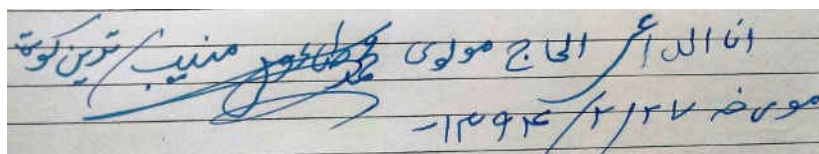 انا الداعی الحاج مولوی محمد طاهر منیب / ترین کوټ
مورخه ۲۷/۲/۱۳۹۴-